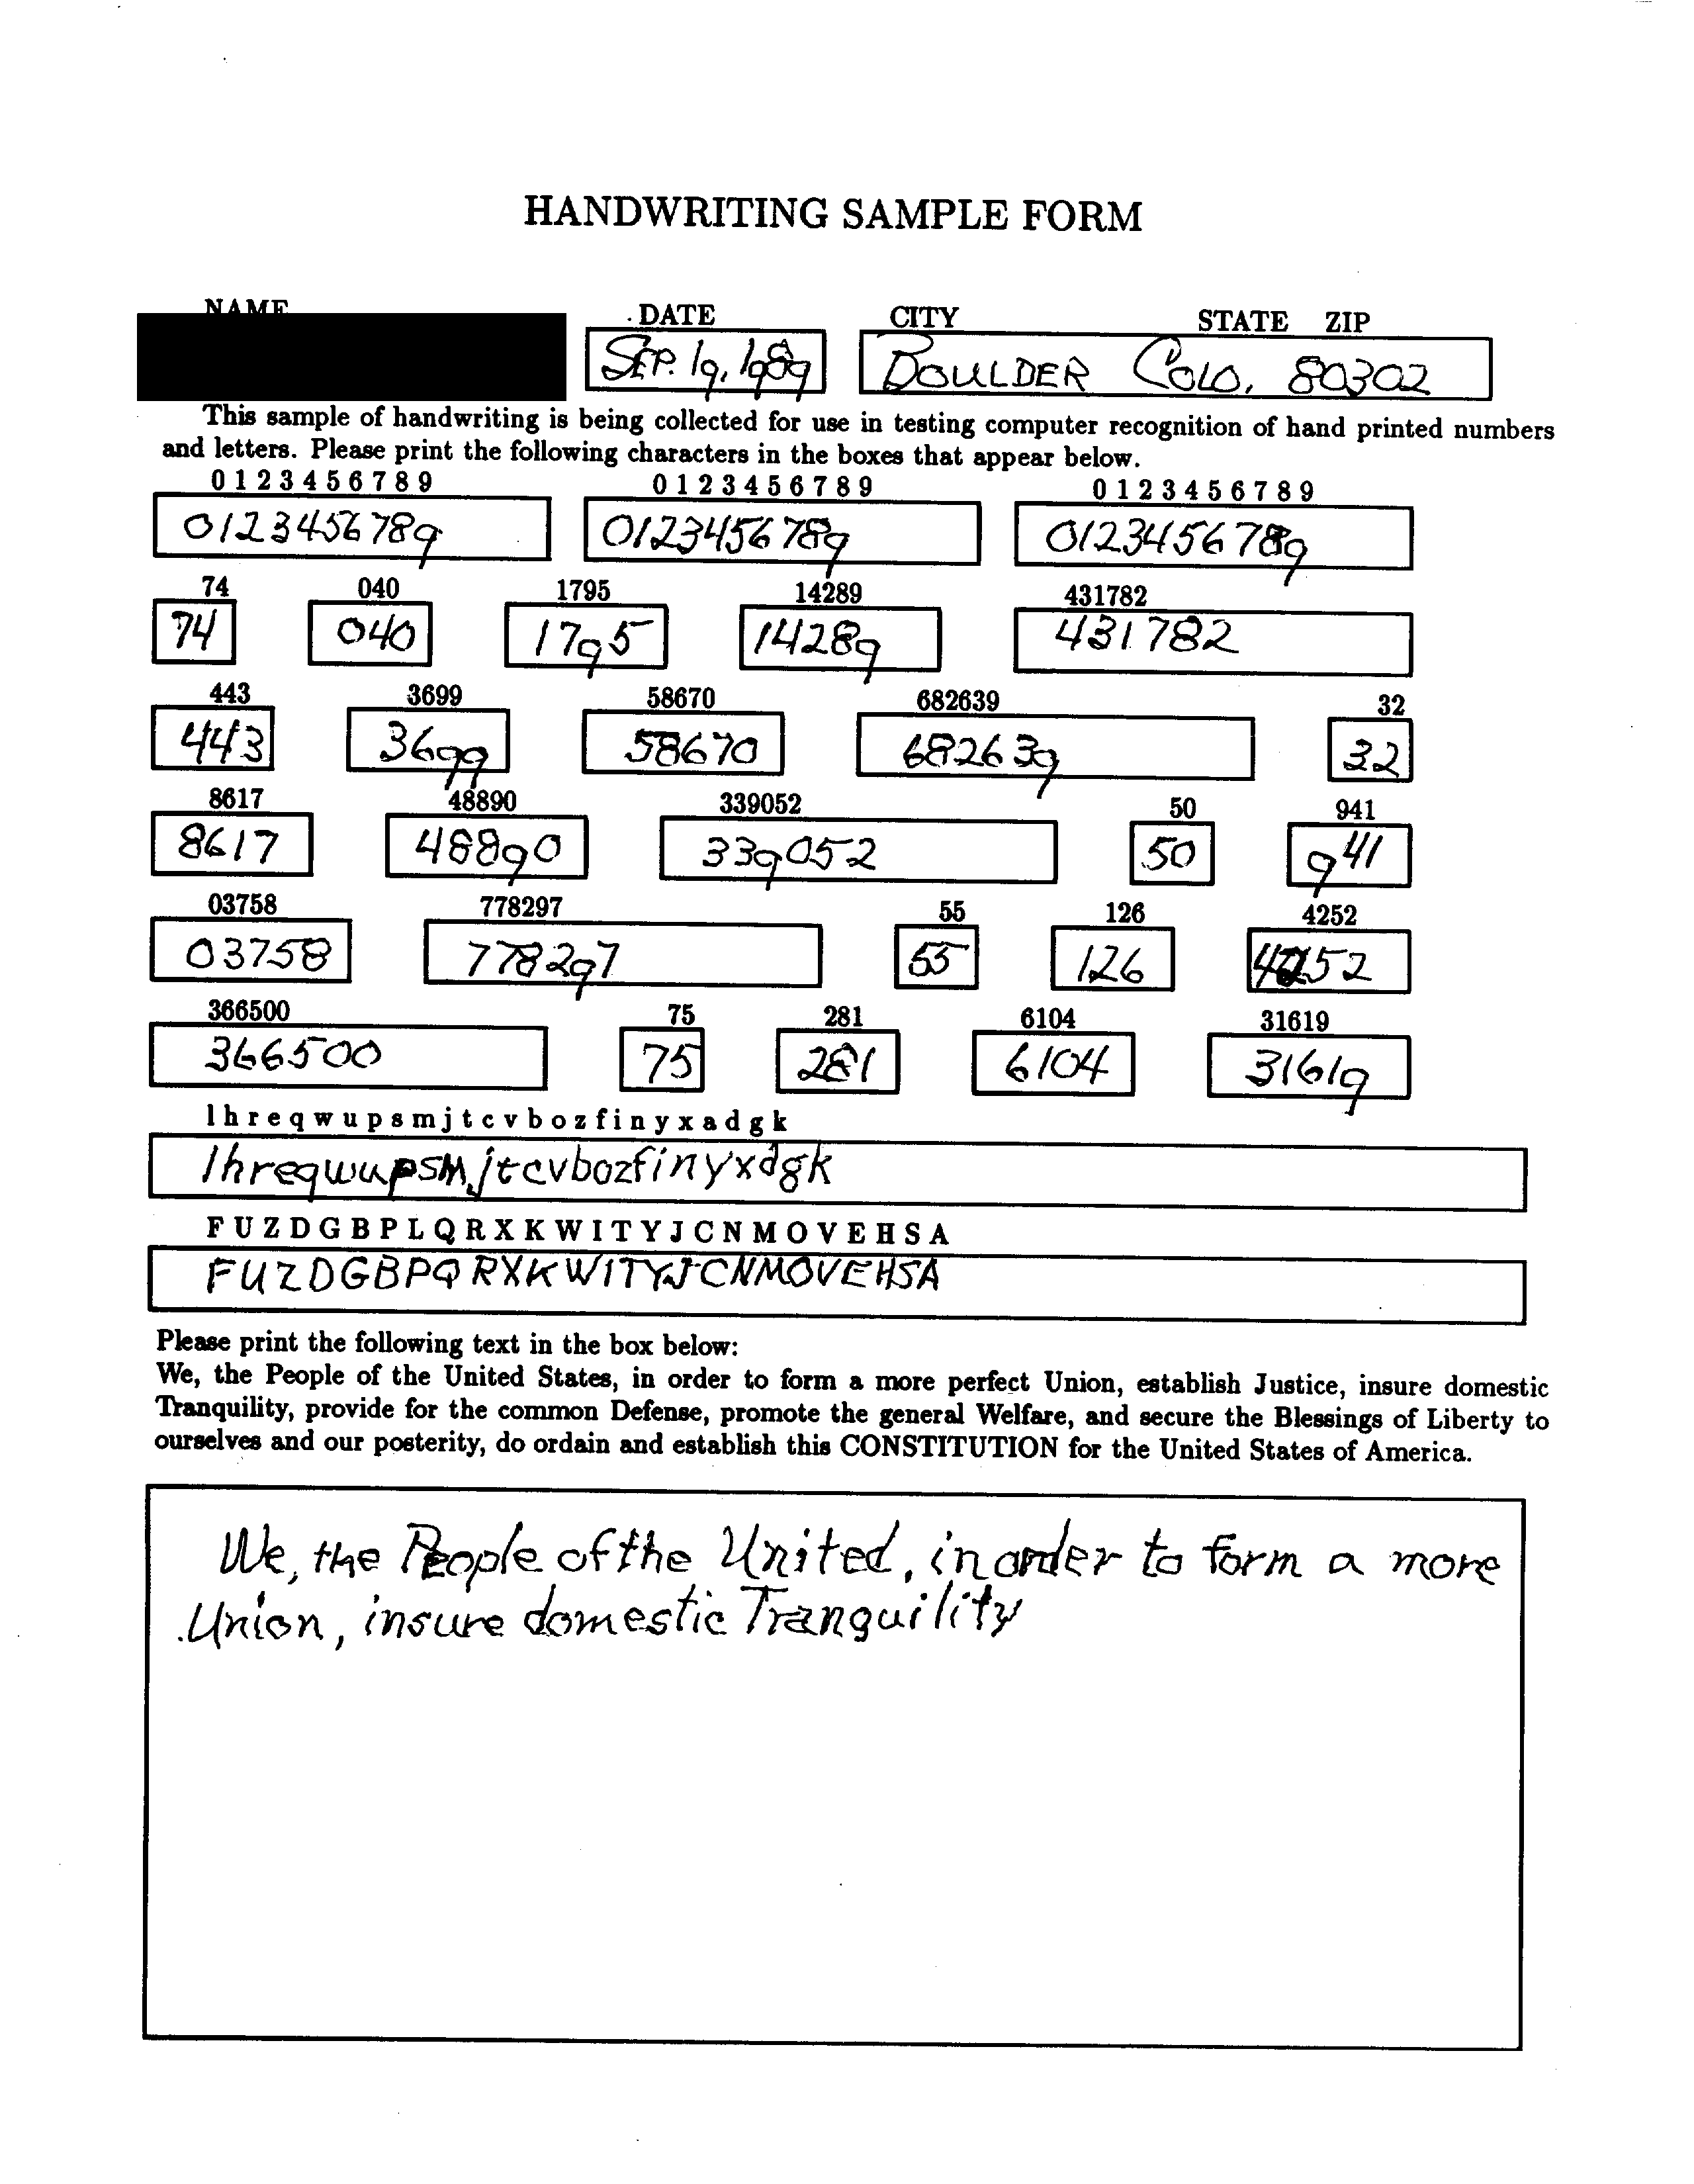 HANDWRITING SAMPLE FORM
NAME DATE CITY STATE ZIP
SEP. 19, 1989 BOULDER COLO. 80302
This sample of handwriting is being collected for use in testing computer recognition of hand printed numbers
and letters. Please print the following characters in the boxes that appear below.
0 1 2 3 4 5 6 7 8 9 0 1 2 3 4 5 6 7 8 9 0 1 2 3 4 5 6 7 8 9
0123456789 0123456789 0123456789
74 040 1795 14289 431782
74 040 1795 14289 431782
443 3699 58670 682639 32
443 3699 58670 682639 32
8617 48890 339052 50 941
8617 48890 339052 50 941
03758 778297 55 126 4252
03758 778297 55 126 4252
366500 75 281 6104 31619
366500 75 281 6104 31619
l h r e q w u p s m j t c v b o z f i n y x a d g k
lhreqwupsmjtcvbozfinyxdgk
F U Z D G B P L Q R X K W I T Y J C N M O V E H S A
FUZDGBPQRXKWITYJCNMOVEHSA
Please print the following text in the box below:
We, the People of the United States, in order to form a more perfect Union, establish Justice, insure domestic
Tranquility, provide for the common Defense, promote the general Welfare, and secure the Blessings of Liberty to
ourselves and our posterity, do ordain and establish this CONSTITUTION for the United States of America.
We, the People of the United, in order to form a more
Union, insure domestic Tranquility